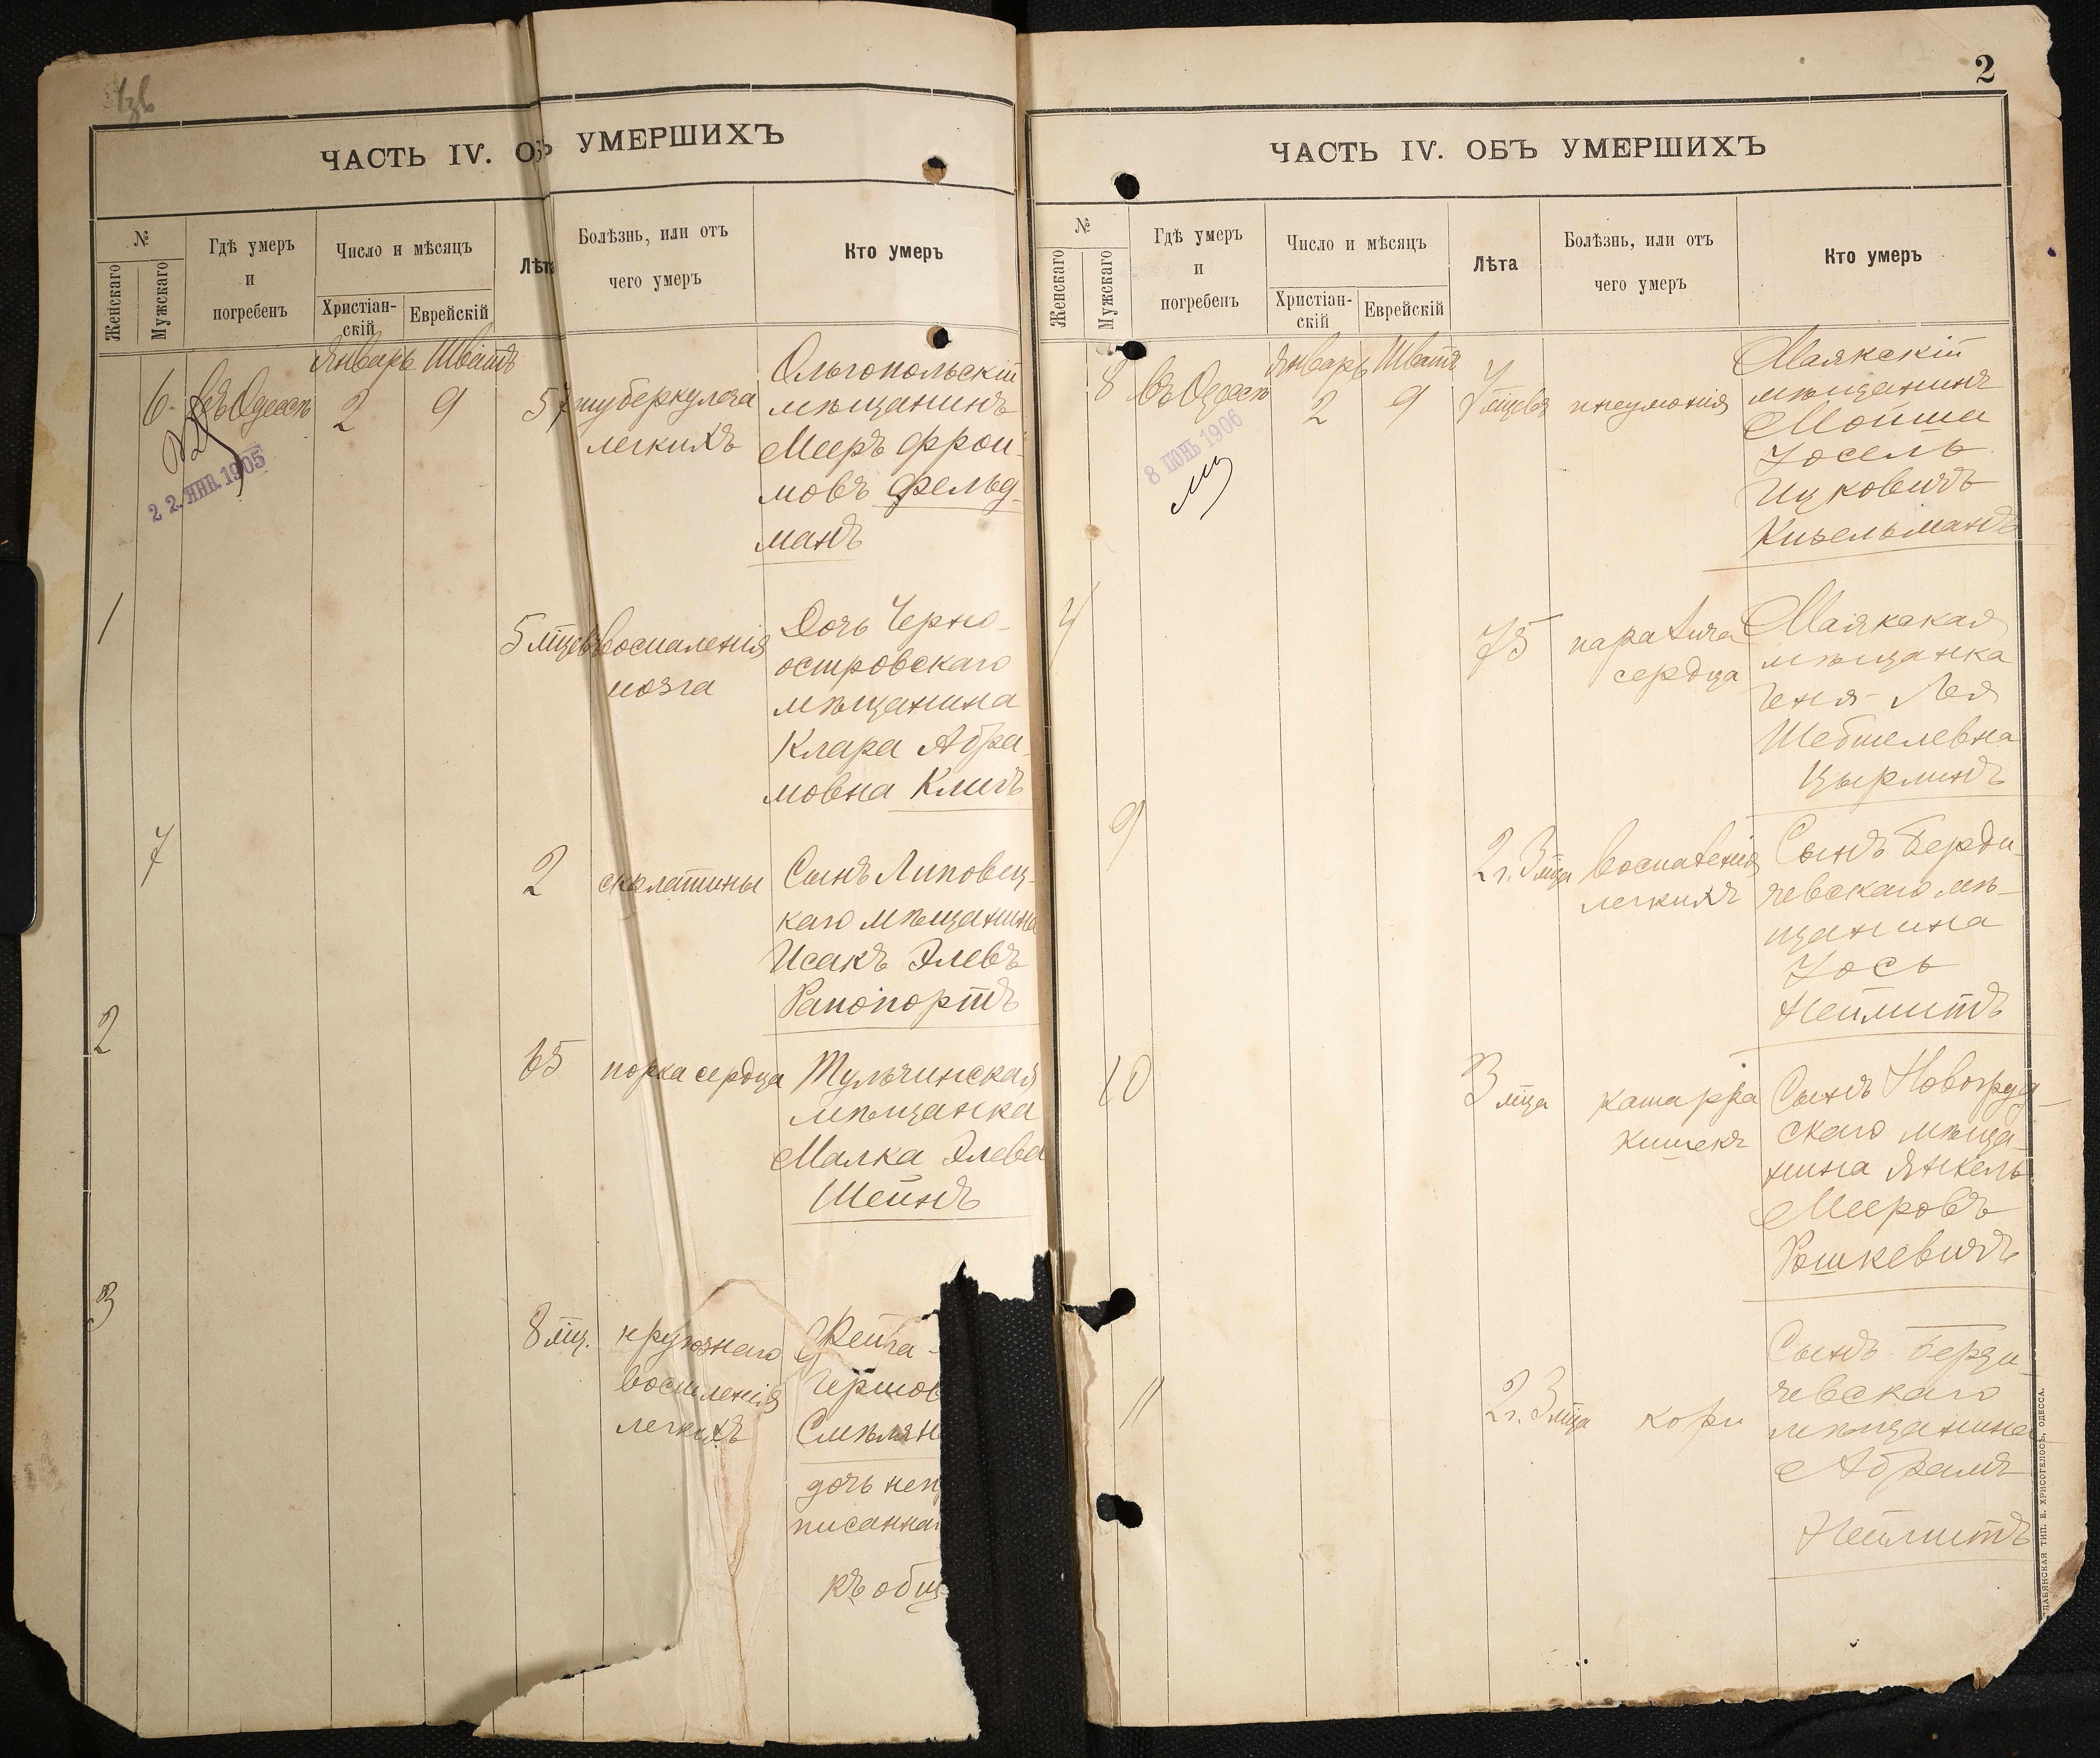 ЧАСТЬ IV. ОБЪ УМЕРШИХЪ
№
Женскаго
Мужскаго
Гдѣ умеръ
и
погребенъ
Число и мѣсяцъ
Христіан-
скій
Еврейскій
Лѣта
Болѣзнь, или отъ
чего умеръ
Кто умеръ
Январь Шватъ
6
въ Одессѣ
2
9
57
туберкулеза
легкихъ
Ольгопольскій
мѣщанинъ
Мееръ Фрои-
мовъ Фельд-
манъ
22 ЯНВ. 1905
1
5 мѣсцевъ
воспаленія
мозга
Дочь Черно-
островскаго
мѣщанина
Клара Абра-
мовна
7
2
скарлатины
Сынъ Липовец-
каго мѣщанина
Исакъ Элевъ
Рапопортъ
2
65
порка сердца
Тульчинская
мѣщанка
Малка Элева
Шейнъ
3
8 мѣц.
крупознаго
воспаленія
легкихъ
Гершов
Смѣлян
дочь неп
писанна
къ общ
2
ЧАСТЬ IV. ОБЪ УМЕРШИХЪ
№
Женскаго
Мужскаго
Гдѣ умеръ
и
погребенъ
Число и мѣсяцъ
Христіан-
скій
Еврейскій
Лѣта
Болѣзнь, или отъ
чего умеръ
Кто умеръ
Январь Шватъ
8
въ Одессѣ
2
9
мѣсцевъ
пнеумонія
Маякскій
мѣщанинъ
Мойша
Іосель
Ицковичъ
Кизельманъ
8 ІЮНЬ 1906
4
75
паралича
сердца
Маякская
мѣщанка
Геня-Лея
Шебшелевна
Цырлинъ
9
2 г. 3 мѣца
воспаленія
легкихъ
Сынъ Берди-
чевскаго мѣ-
щанина
Іось
Неймитъ
10
3 мѣца
катарра
кишекъ
Сынъ Новогруд-
скаго мѣща-
нина Янкель
Мееровъ
Рошкевичъ
11
2 г. 3 мѣца
кори
Сынъ Берди-
чевскаго
мѣщанина
Абрамъ
Неймитъ
СЛАВЯНСКАЯ ТИП. Е. ХРИСОГЕЛОСЪ, ОДЕССА.